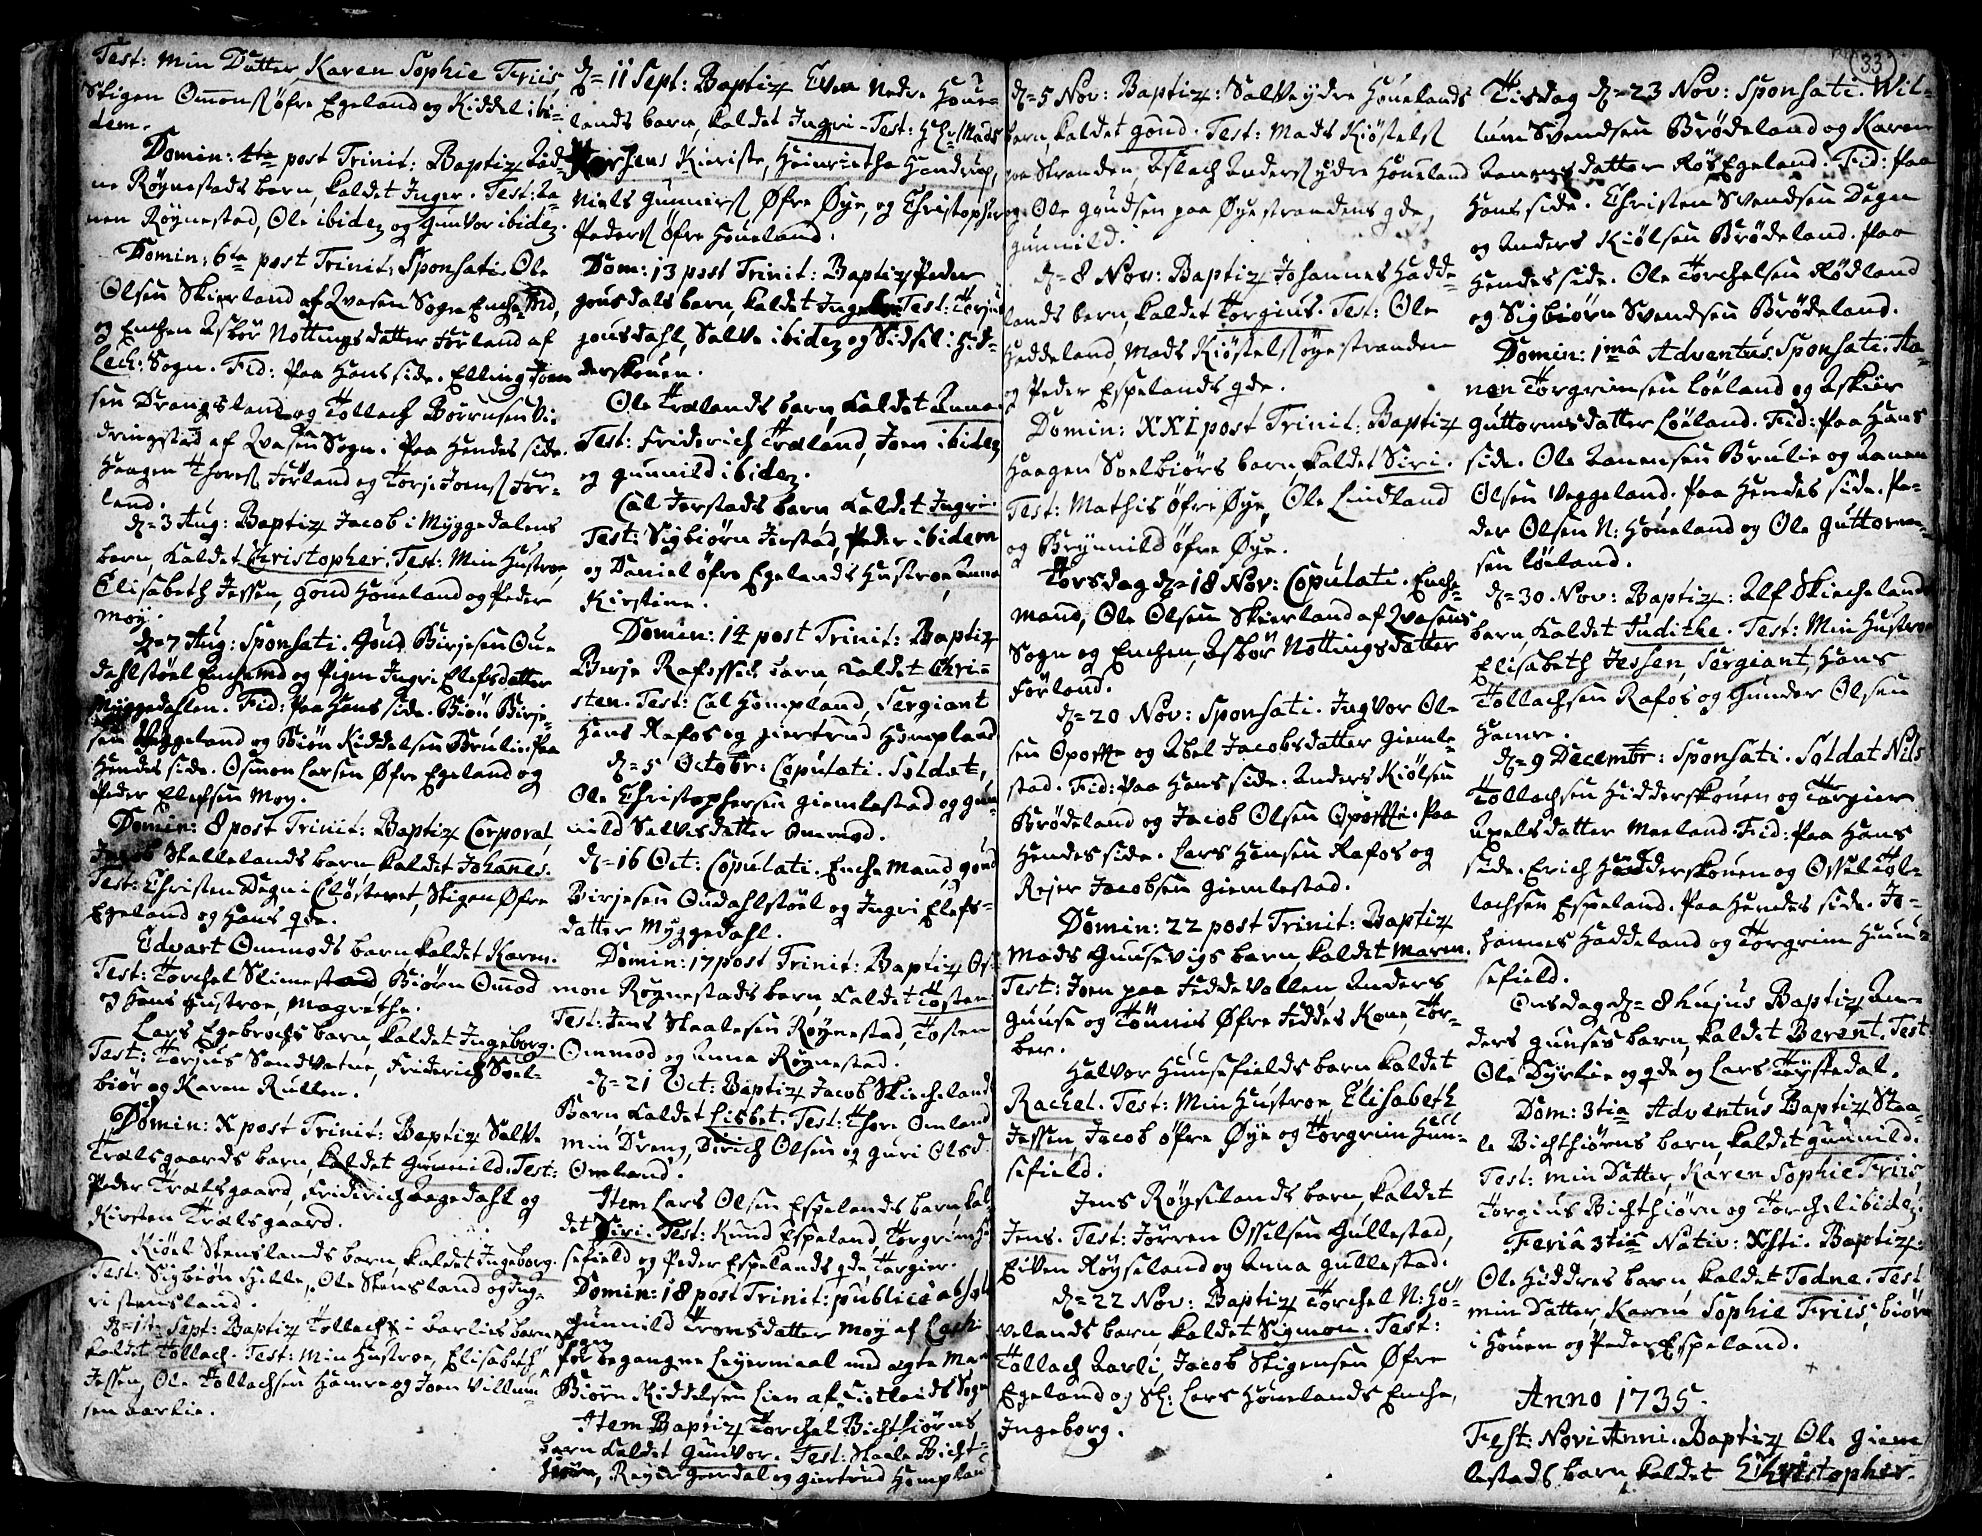 Test: Min Datter, Karen Sophie Friis,
Stigen Omonss øfre Egeland og Kiddel ibi-
dem.
Domin: 4te post Trinit: Baptiz Aad-
ne Røynestads barn, kaldet Inger. Test: Aa-
nen Røynestad, Ole ibidem og Gunvor ibidem.
Domin: 6te post Trinit: Sponsati. Ole
Olsen Skierland af Qvasen Sogn Enchemd,
og Enchen Asbør Nottingsdatter Førland af
Lech: Sogn. Fid: Paa Hans side. Elling Joen
sen Drangsland og Tollach Børensen Vi-
dringstad af Qvasen Sogn. Paa Hendes side.
Haagen Thoress Førland og Torje Joenss Før-
land.
d= 3 Aug: Baptiz Jacob i Myggedalens
barn, kaldet Christopher. Test: Min Hustroe,
Elisabeth Jessen, Gond Houeland og Peder
Moy.
d= 7 Aug: Sponsati. Gond Birjesen Ou-
dahlstøel Enchemd og Pigen Ingri Elefsdatter
Myggedahlen. Fid: Paa Hans side. Biøn Birje-
sen Veggeland og Biøn Kiddelsen Brulie. Paa
Hendes side. Osmon Larsen Øfre Egeland og
Peder Elefsen Moy.
Domin: 8 post Trinit: Baptiz Corporal,
Jacob Stallelands barn, kaldet Johannes.
Test: Christen Degn i Clösteret, Stigen Øfre
Egeland og Hans qde.
Edvart Ommods barn kaldet Karen.
Test: Torchel Slimestad Biørn Omod
og Hans Hustroe, Magrethe.
Lars Egebrochs barn, kaldet Ingeborg.
Test: Torjus Sandvatne, Friderich Svel-
biør og Karen Rullen.
Domin: X post Trinit: Baptiz Salve
Trælsgaards barn, kaldet Gunnild. Test:
Peder Trælsgaard, Friderich Aagedahl og
Kirsten Trælsgaard.
Kiøel Stenslands barn, kaldet Ingeborg.
Test: Sigbiøn Hille, Ole Stensland og Ing-
ri Stensland.
d= 1te Sept: Baptiz Tollach i Aarlies barn
kaldet Tollach. Test: Min Hustroe, Elisabeth
Jessen, Ole Tollachsen Hamre og Joen Villum
sen Aarlie.
d= 11 Sept: Baptiz Even Nedre Houe-
lands barn, kaldet Ingri. Test: Hr Mads
Kieriste, Heinrietha Hendrup,
Niels Gunnerss Øfre Øye, og Christopher
Pederss Øfre Houeland.
Dom: 13 post Trinit: Baptiz Peder
Jonsdals barn, kaldet Ingeb: Test: Torjus
Jonsdahl, Salve ibidem og Sidsel i Hid-
derskouen.
Ole Trælands barn, kaldet Anna.
Test: Friderich Træland, Joen ibidem
og Gunnild ibidem.
Cal Jerstads barn kaldet Ingri.
Test: Sigbiørn Jerstad, Peder ibidem
og Daniel øfre Egelands Hustroe, Anna
Kirstine.
Domin: 14 post Trinit: Baptiz
Børje Rafossets barn, kaldet Chri-
sten. Test: Cal Hompland, Sergiant
Hans Rafos og Giertrud Hompland
d= 5 Octobr: Copulati. Soldat,
Ole Christophersen Giemlestad og Gun
nild Salvesdatter Ommod.
d= 16 Oct: Copulati. Enche Mand, Gond
Birjesen Oudahlstøel og Ingri Elefs-
datter Myggedahl.
Domin: 17 post Trinit: Baptiz Os-
mon Røynestads barn, kaldet Tosten.
Test: Jens Staalesen Røynestad, Tosten
Ommod og Anna Røynestad.
d= 21 Oct: Baptiz Jacob Skiechelands
Barn kaldet Lisbet. Test: Thore Omland
min Dreng, Dirich Olsen og Guri Olsd
Omland.
Item Lars Olsen Espelands barn kal-
det Siri. Test: Knud Espeland, Torgrim Hu
sefield og Peder Espelands qde, Torgier.
Domin: 18 post Trinit: publicè absol
Gunnild Tronsdatter Moy af Lech:
Sogn
for begangne Leyermaal med ægte Man
Biørn Kiddelsen Lien af Fistlands Sogn
Item Baptiz Torchel Bichthiørns
barn kaldet Gunvor. Test: Staale Bicht-
hiørn, Reyer Guerdal og Giertrud Hompland
33
d= 5 Nov: Baptiz: Salve ydre Houelands
barn, kaldet Gond. Test: Mads Kiøstelss
paa Stranden, Aslach Anderss ydre Houeland
og Ole Gundsen paa Øyestrandens qde,
Gunnild.
d= 8 Nov: Baptiz Johannes Hadde-
lands barn, kaldet Torgius. Test: Ole
Haddeland, Mads Kiøstelss Øyestranden
og Peder Espelands qde.
Domin: XXI post Trinit: Baptiz
Haagen Svelbiørs barn kaldet Siri.
Test: Mathis øfre Øye, Ole Lindland
og Brynnild øfre Øye.
Torsdag d= 18 Nov: Copulati. Enche-
mand, Ole Olsen Skierland af Qvasens
Sogn og Enchen, Asbør Nottingsdatter
Førland.
d= 20 Nov: Sponsati. Ingvor Ol-
sen Opofte og Abel Jacobsdatter Giemle-
stad. Fid: Paa Hans side. Anders Kiølsen
Brødeland og Jacob Olsen Opofte. Paa
Hendes side. Lars Hansen Rafos og
Rejer Jacobsen Giemlestad.
Domin: 22 post Trinit: Baptiz
Mads Guusevigs barn, kaldet Maren.
Test: Joen paa Feddevollen, Anders
Guuse og Tønnis Øfre Feddes Kone, Tor-
ber.
Halvor Huusefields barn kaldet
Rachel. Test: Min Hustroe Elisabeth
Jessen, Jacob øfre Øye og Torgrim Huu-
sefield.
Jens Røyselands barn, kaldet
Jens. Test: Jørren Osselsen Gullestad,
Eiven Røyseland og Anna Gullestad.
d= 22 Nov: Baptiz Torchel N: Ho-
velands barn, kaldet Sigmon. Test:
Tollach Aarli, Jacob Stigensen Øfre
Egeland og Sl: Lars Houelands Enche,
Ingeborg.
Tisdag d= 23 Nov: Sponsati. Wil-
lum Svendsen Brødeland og Karen
Aanensdatter Røs Egeland. Fid: Paa
Hans side. Christen Svendsen Degn
og Anders Kiølsen Brødeland. Paa
Hendes side. Ole Torchelsen Rødland
og Sigbiørn Svendsen Brødeland.
Domin: 1mâ Adventus. Sponsati. Aa-
nen Torgrimsen Løeland og Asbiør
Guttormsdatter Løland. Fid: Paa Hans
side. Ole Aanensen Brulie og Aanen
Olsen Veggeland. Paa Hendes side. Pe-
der Olsen N: Houeland og Ole Guttorm-
sen Løeland.
d= 30 Nov: Baptiz: Alf Skiechelands
barn, kaldet Judithe. Test: Min Hustroe
Elisabeth Jessen, Sergiant, Hans
Tollachsen Rafos og Gunder Olsen
Hamre.
d= 9 Decembr: Sponsati. Soldat Nils
Tollachsen Hidderskouen og Torgier
Axelsdatter Meeland. Fid: Paa Hans
side. Erich Hidderskouen og Ossel Tol-
lachsen Espeland. Paa Hendes side. Jo-
hannes Haddeland og Torgrim Huuu-
sefield.
Onsdag d= 8 hujus Baptiz An-
ders Gunses barn, kaldet Berent. Test
Ole Dyrlie og qde og Lars Tystedal.
Dom: 3tia Adventus Baptiz Staa-
le Bichthiørns barn, kaldet Gunnild.
Test: Min Datter, Karen Sophie Friis,
Torgius Bichthiørn og Torchel ibidem.
Feriâ 3tiâ Nativ: Xsti. Baptiz:
Ole Hiddres barn kaldet Todne. Test
min Datter, Karen Sophie Friis, biørn
i Houen og Peder Espeland.
Anno 1735.
Fest: Novi Anni. Baptiz Ole Giem
lestads barn kaldet Christopher.